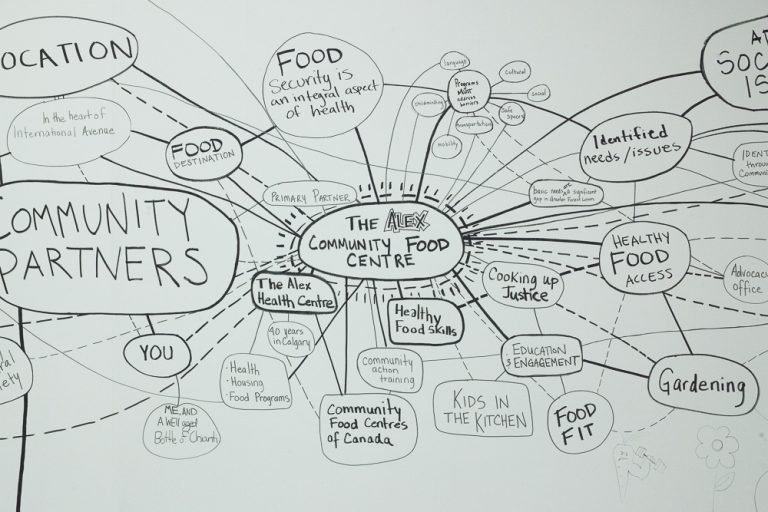 LOCATION
In the heart of
International Avenue
FOOD
DESTINATION
COMMUNITY
PARTNERS
YOU
ME AND
A Well aged
Bottle of Chianti
FOOD
Security is
an integral aspect
of health
PRIMARY PARTNER
THE ALEX
COMMUNITY FOOD
CENTRE
The Alex
Health Centre
40 years
in Calgary
• Health
• Housing
• Food Programs
Community
Food Centres
of Canada
Community
action
training
Healthy
Food Skills
KIDS IN
THE KITCHEN
Programs
MUST
address
barriers
language
cultural
social
Safe
spaces
transportation
mobility
childminding
Identified
needs/issues
basic needs are a significant
gap in Greater Forest Lawn
HEALTHY
FOOD
ACCESS
Cooking up
Justice
EDUCATION
& ENGAGEMENT
FOOD
FIT
Gardening
Advocacy
office
SOC
IS
IDENT
through
Communi